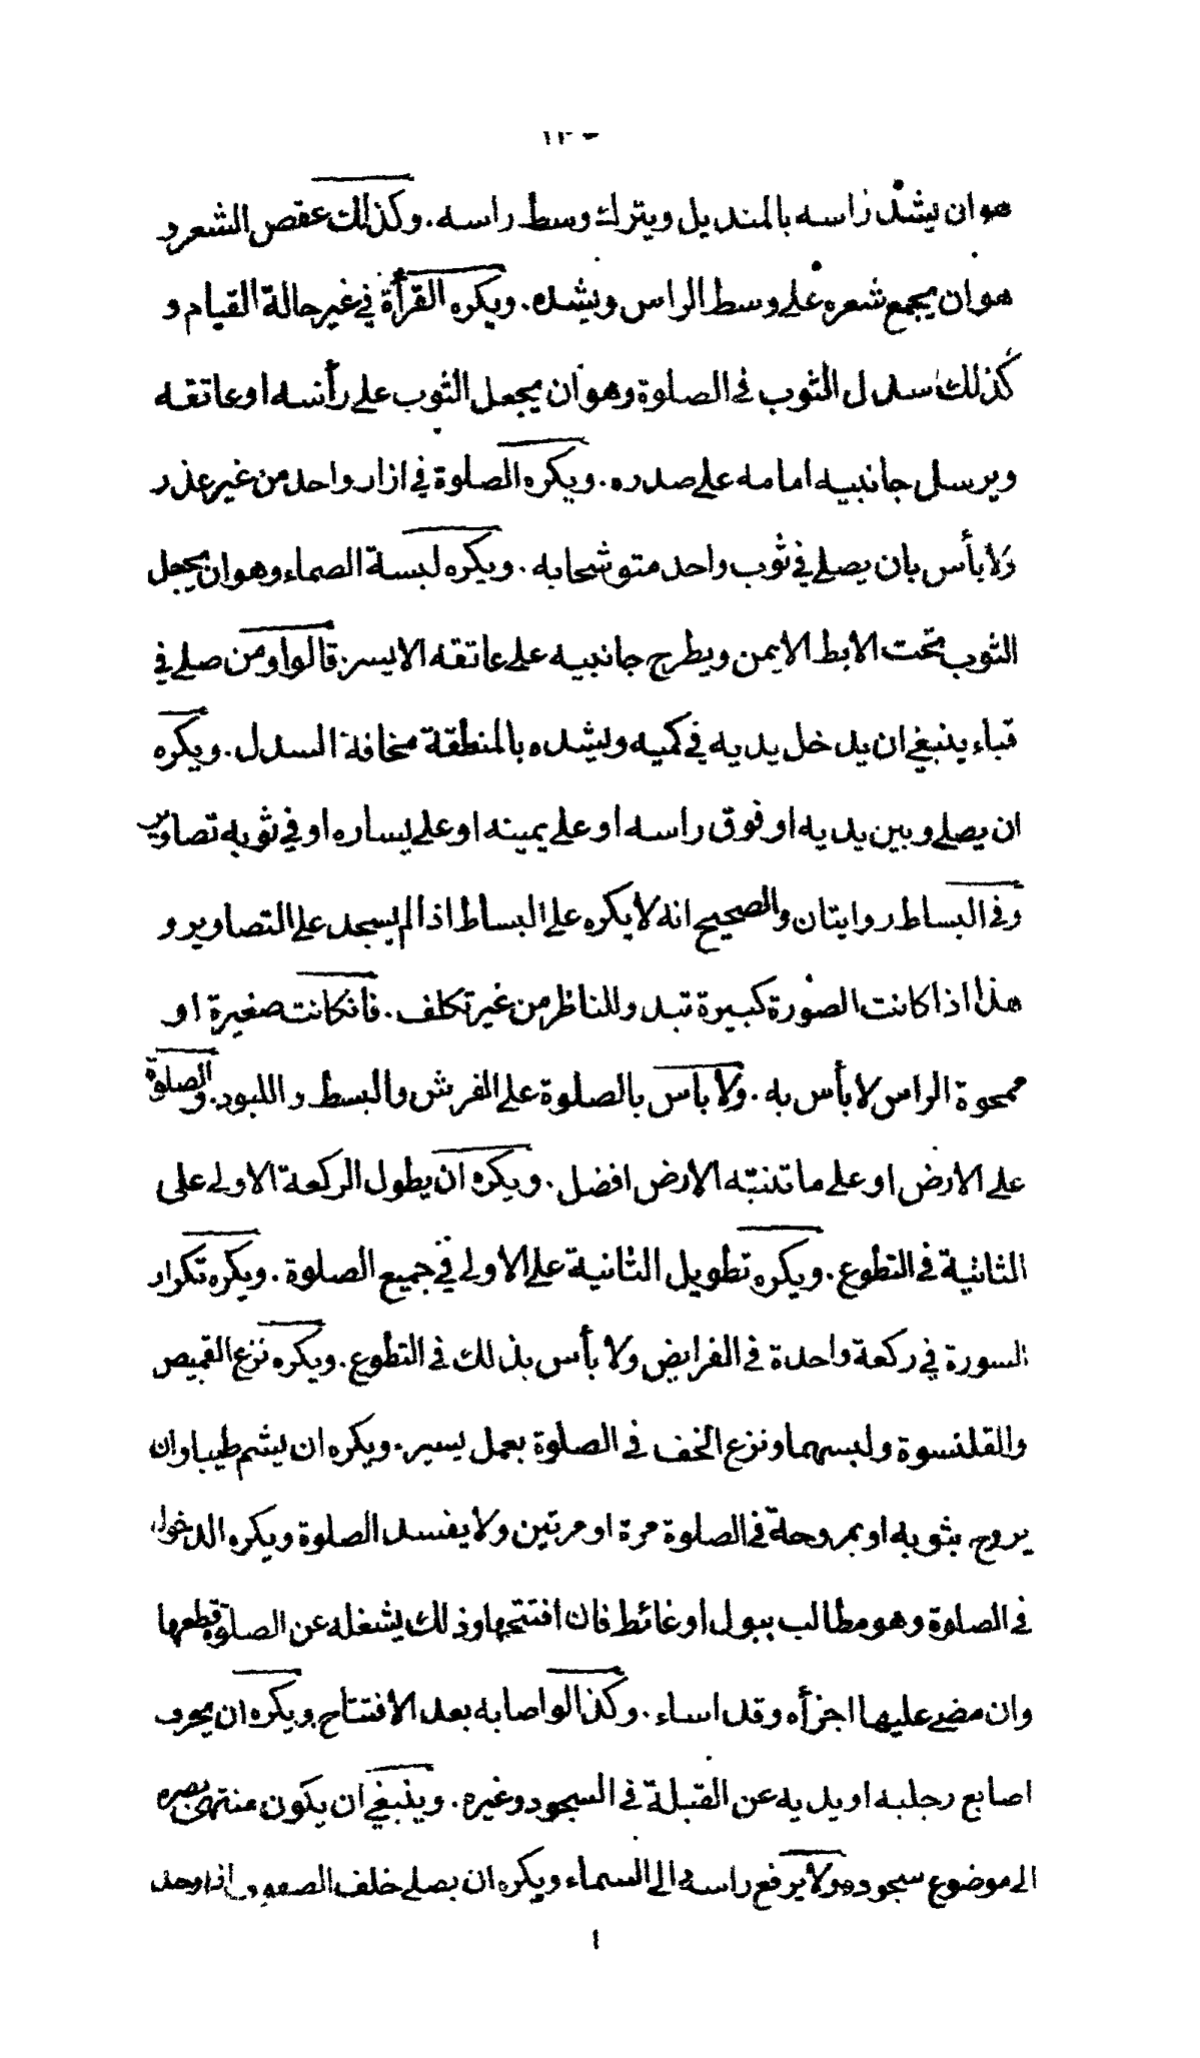 ١٣٠
هو ان يشد راسه بالمنديل ويترك وسط راسه. وكذلك عقص الشعر و
هو ان يجمع شعره على وسط الراس ويشده. ويكره القرأة في غير حالة القيام و
كذلك سدل الثوب في الصلوة وهو ان يجعل الثوب على رأسه او عاتقه
ويرسل جانبيه امامه على صدره. ويكره الصلوة في ازار واحد من غير عذر
ولا بأس بان يصلي في ثوب واحد متوشحا به. ويكره لبسة الصماء وهو ان يجعل
الثوب تحت الابط الايمن ويطرح جانبيه على عاتقه الايسر. قالوا ومن صلى في
قباء ينبغي ان يدخل يديه في كميه ويشده بالمنطقة مخافة السدل. ويكره
ان يصلي وبين يديه او فوق راسه او على يمينه او على يساره او في ثوبه تصاوير
وفي البساط روايتان والصحيح انه لا يكره على البساط اذا لم يسجد على التصاوير و
هذا اذا كانت الصورة كبيرة تبدو للناظر من غير تكلف. فانكانت صغيرة او
ممحوة الراس لا بأس به. ولا باس بالصلوة على الفرش والبسط و اللبود. والصلوة
على الارض او على ما تنبته الارض افضل. ويكره ان يطول الركعة الاولى على
الثانية في التطوع. ويكره تطويل الثانية على الاولى في جميع الصلوة. ويكره تكرار
السورة في ركعة واحدة في الفرايض ولا بأس بذلك في التطوع. ويكره نزع القميص
والقلنسوة ولبسهما ونزع الخف في الصلوة بعمل يسير. ويكره ان يشم طيبا وان
يروح بثوبه او بمروحة في الصلوة مرة او مرتين ولا يفسد الصلوة ويكره الدخول
في الصلوة وهو مطالب ببول او غائط فان افتتحها وذلك يشغله عن الصلوة قطعها
وان مضى عليها اجزأه وقد اساء. وكذا لو اصابه بعد الافتتاح. ويكره ان يحرف
اصابع رجليه او يديه عن القبلة في السجود وغيره. وينبغي ان يكون منتهى بصره
الى موضوع سجوده ولا يرفع راسه الى السماء ويكره ان يصلي خلف الصف
١